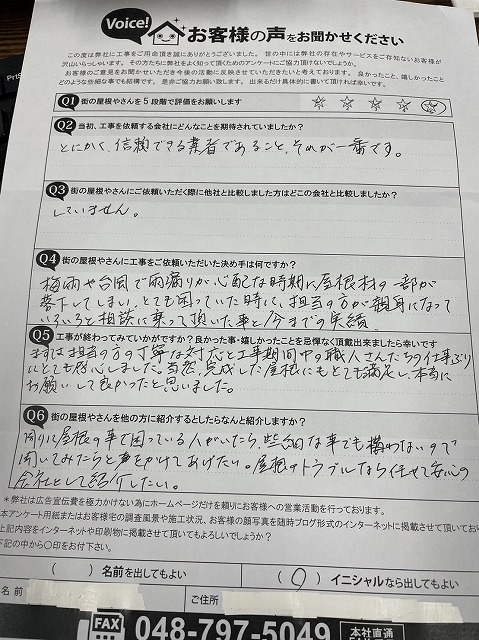 Voice!
お客様の声をお聞かせください
この度は弊社に工事をご用命頂き誠にありがとうございました。 世の中には弊社の存在やサービスをご存知ないお客様が
沢山いらっしゃいます。 その方たちに弊社をよく知って頂くためのアンケートにご協力頂けないでしょうか。
お客様のご意見をお聞かせいただき今後の活動に反映させていただきたいと考えております。 良かったこと、嬉しかったこと
どのような些細な事でも結構です。 是非ご協力お願い致します。 出来るだけ具体的に書いて頂ければ幸いです。
Q1 街の屋根やさんを5段階で評価をお願いします
Q2 当初、工事を依頼する会社にどんなことを期待されていましたか?
とにかく、信頼できる業者であること、それが一番です。
Q3 街の屋根やさんにご依頼いただく際に他社と比較しました方はどこの会社と比較しましたか?
していません。
Q4 街の屋根やさんに工事をご依頼いただいた決め手は何ですか?
梅雨や台風で雨漏りが心配な時期に屋根材の一部が
落下してしまい、とても困っていた時に、担当の方が親身になって
いろいろと相談に乗って頂いた事と今までの実績
Q5 工事が終わってみていかがですか?良かった事・嬉しかったことを忌憚なく頂戴出来ましたら幸いです
まずは担当の方の丁寧な対応と工事期間中の職人さんたちの仕事ぶり
にとても感心しました。当然、完成した屋根にもとても満足し、本当に
お願いして良かったと思いました。
Q6 街の屋根やさんを他の方に紹介するとしたらなんと紹介しますか?
周りに屋根の事で困っている人がいたら、些細な事でも構わないので
聞いてみたらと声をかけてあげたい。屋根のトラブルなら任せて安心の
会社として紹介したい。
*弊社は広告宣伝費を極力かけない為にホームページだけを頼りにお客様への営業活動を行っております。
本アンケート用紙またはお客様宅の調査風景や施工状況、お客様の顔写真を随時ブログ形式のインターネットに掲載させて頂いてお
上記内容をインターネットや印刷物に掲載させて頂いてもよろしいでしょうか?
下記の中から〇印をお付下さい。
( ) 名前を出してもよい
(○) イニシャルなら出してもよい
名前
ご住所
FAX 048-797-5049 本社直通